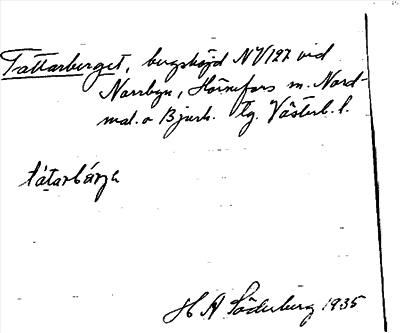 Tattarberget, bergshöjd NV127 vid
Norrbyn, Hörnefors m. Nord-
mal. o Bjurh. tg. Västerb. l.
tátarbárja
H A Söderberg 1935